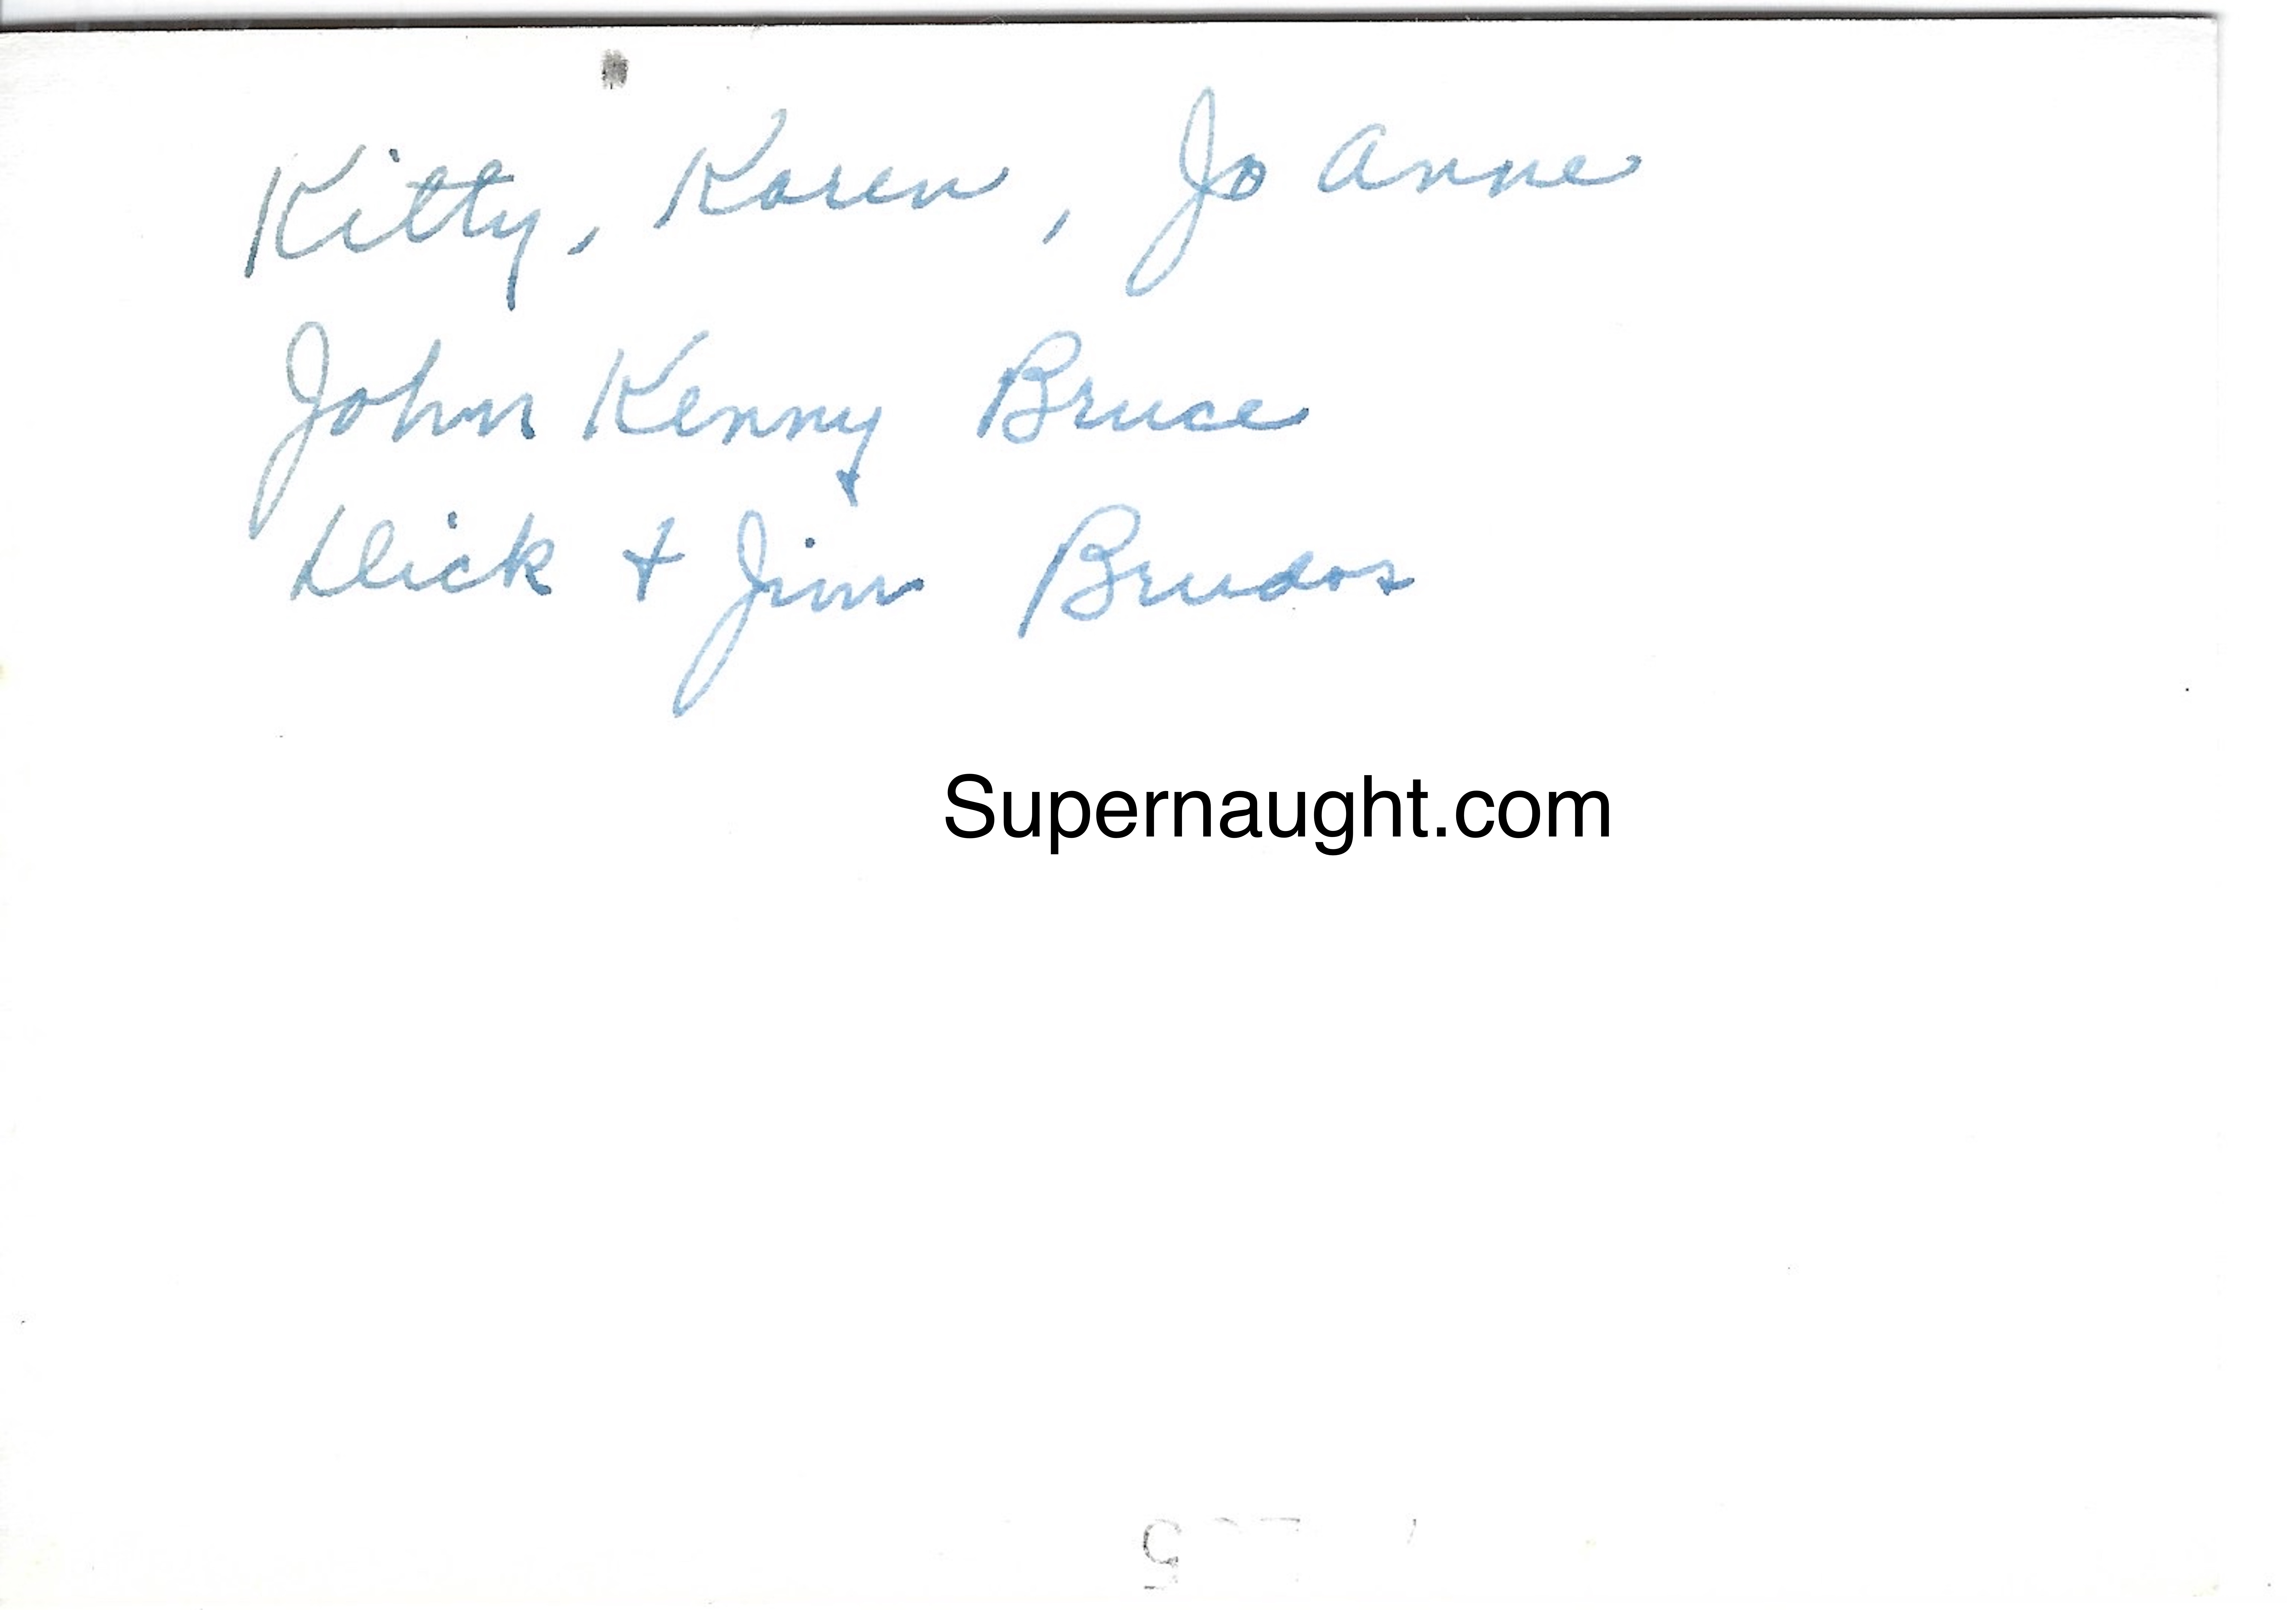 Kitty, Karen, Jo Anne
John Kenny Bruce
Dick + Jim Brudos
Supernaught.com